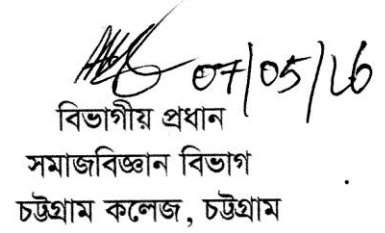 07/05/26
বিভাগীয় প্রধান
সমাজবিজ্ঞান বিভাগ
চট্টগ্রাম কলেজ, চট্টগ্রাম